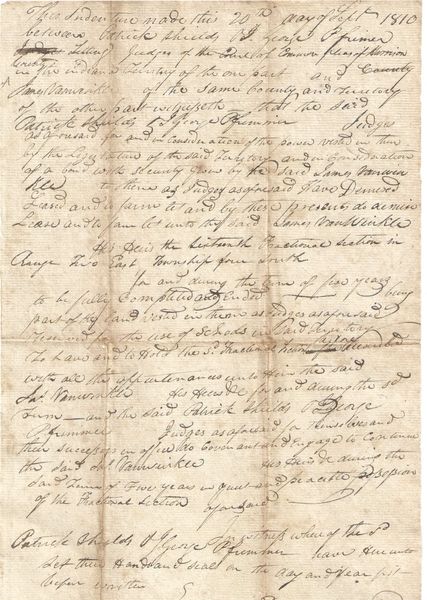 This Indenture made this 20th day of Sept 1810
between Patrick Shields & George Frimmer
sitting Judges of the court of Common pleas of Harrison
County in the indiana Territory of the one part and
James Vanwinkle of the same County and Territory
of the other part witnesseth that the said
Patrick Shields & George Frimmer Judges
as aforesaid for and in Consideration of the power vested in them
by the Legislature of the said Territory and in Consideration
of a bond with security given by the said James Vanwin
kle to them as Judges aforesaid Have Demised
Leased and to farm let and by these presents do demise
Lease and to farm let unto the said James VanWinkle
His Heirs the Sixteenth Fractional Section in
Range Two East Township four South
for and during the term of five years
to be fully Completed and Ended being
part of the land vested in them as Judges aforesaid
reserved for the use of Schools in said Territory
To have and to Hold the sd Fractional section before described
with all the appurtenances unto Him the said
Jas Vanwinkle His Heirs &c for and during the sd
Term — and the said Patrick Shields & George
Frimmer Judges as aforesaid for themselves and
their successors in office &c Covenant and Engage to Continue
the said Jas Vanwinkle His Heirs &c during the
said Term of Five years in quiet and peaceable possession
of the Fractional Section aforesaid
In witness whereof the sd
Patrick Shields & George Frimmer have Hereunto
set their Hands and seals on the day and year first
before written